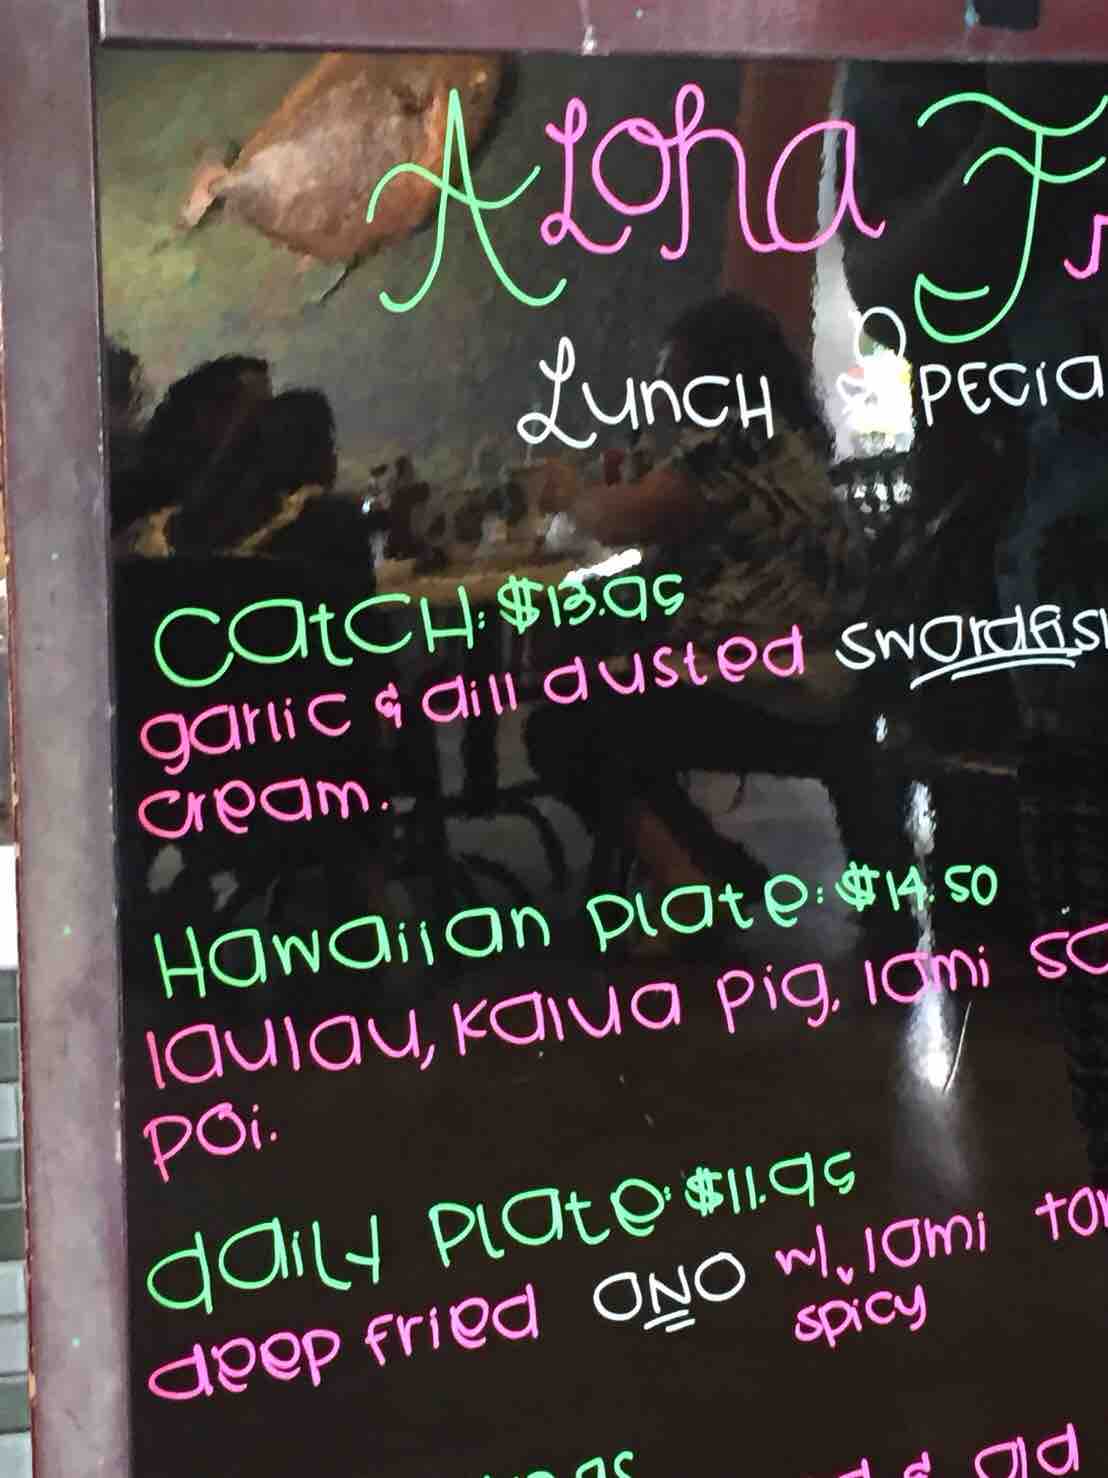 ALoha Fr
Lunch SPECIA
CatCH: $13.95
garlic & dill dusted swordfish
cream.
Hawaiian plate: $14.50
laulau, kalua pig, lomi sa
poi.
daily plate: $11.95
deep fried ONO w/ lomi to
spicy